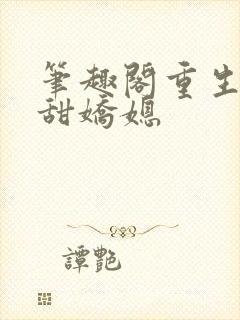 筆趣閣重生
甜嬌媳
譚艷